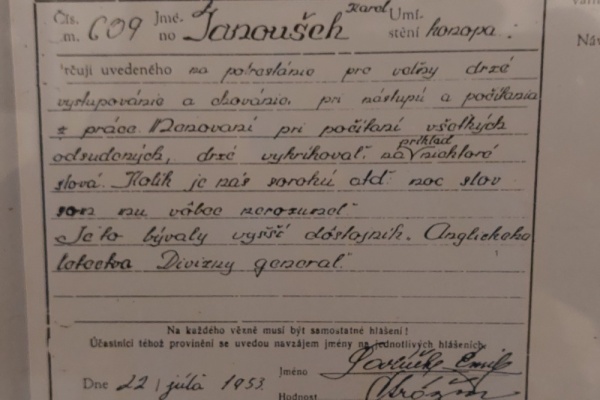 Čís. Jmé- Karel Umí-
m. 609 no Janoušek stění konopa.
určuji uvedeného na potrestánie pre voľný drzé
vystupovánie a chovánie, pri nástupů a počítania
z práce. Menovaní pri počítaní všetkých
odsudených, drze vykrikoval. na príklad niektoré
slová. Kolik je nás sorokú atď. noc slov
som mu vôbec nerozumel
Je to bývalý vyšší dôstojník. Anglického
letectva Divizny general.
Na každého vězně musí být samostatné hlášení!
Účastníci téhož provinění se uvedou navzájem jmény na jednotlivých hlášeních.
Jméno
Dne 22 júla 1953. Hodnost
Náv